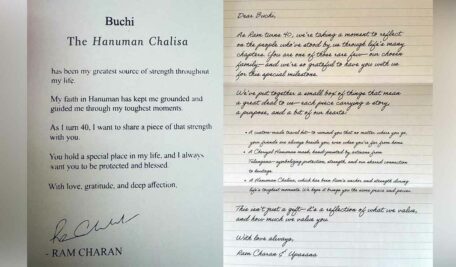 Buchi
The Hanuman Chalisa
has been my greatest source of strength throughout
my life.
My faith in Hanuman has kept me grounded and
guided me through my toughest moments.
As I turn 40, I want to share a piece of that strength
with you.
You hold a special place in my life, and I always
want you to be protected and blessed.
With love, gratitude, and deep affection,
- RAM CHARAN
Dear Buchi,
As Ram turns 40, we're taking a moment to reflect
on the people who've stood by us through life's many
chapters. You are one of those rare few—our chosen
family—and we're so grateful to have you with us
for this special milestone.
We've put together a small box of things that mean
a great deal to us—each piece carrying a story,
a purpose, and a bit of our hearts:
• A custom-made travel kit— to remind you that no matter where you go,
your friends are always beside you, even when you're far from home
• A Cheriyal Hanuman mask, hand-painted by artisans from
Telangana—symbolizing protection, strength, and our shared connection
to heritage.
• A Hanuman Chalisa, which has been Ram's anchor and strength during
life's toughest moments. We hope it brings you the same peace and power.
This isn't just a gift—it's a reflection of what we value,
and how much we value you
With love always,
Ram Charan & Upasana